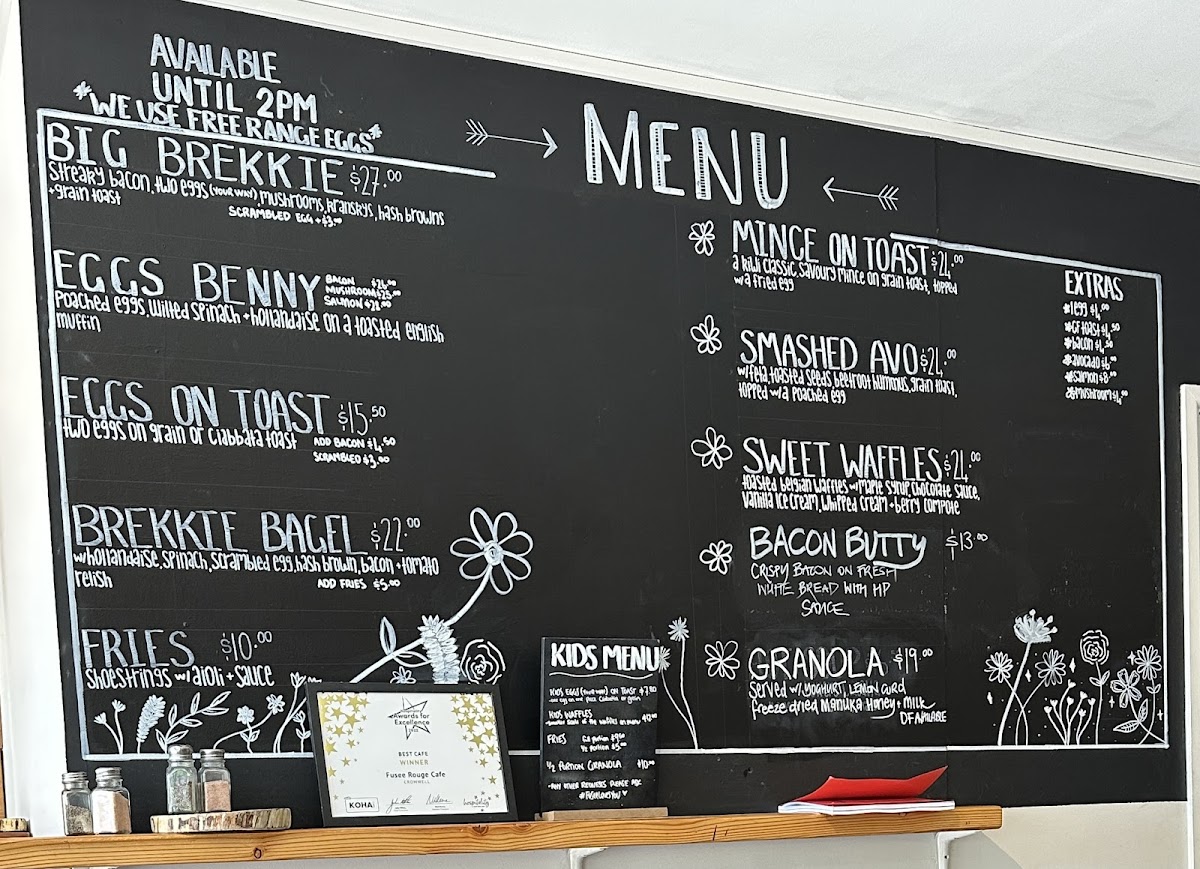 AVAILABLE
UNTIL 2PM
*WE USE FREE RANGE EGGS*
BIG BREKKIE $27.00
Streaky bacon, two eggs (your way), mushrooms, kranskys, hash browns
+ grain toast
SCRAMBLED EGG +$3.00
EGGS BENNY
BACON $26.00
MUSHROOM $25.00
SALMON $28.00
Poached eggs, wilted spinach + hollandaise on a toasted english
muffin
EGGS ON TOAST $15.50
two eggs on grain or ciabbata toast
ADD BACON $4.50
SCRAMBLED $3.00
BREKKIE BAGEL $22.00
w/hollandaise, spinach, scrambled egg, hash brown, bacon + tomato
relish
ADD FRIES $5.00
FRIES $10.00
Shoestrings w/ aioli + sauce
MENU
MINCE ON TOAST $24.00
a kiwi classic, savoury mince on grain toast, topped
w/a fried egg
SMASHED AVO $24.00
w/feta, toasted seeds, beetroot hummus, grain toast,
topped w/a poached egg
SWEET WAFFLES $24.00
toasted belgian waffles w/maple syrup, chocolate sauce,
vanilla ice cream, whipped cream + berry compote
BACON BUTTY $13.00
CRISPY BACON ON FRESH
WHITE BREAD WITH HP
SAUCE
GRANOLA $19.00
served w/ YOGHURT, LEMON curd
freeze dried Manuka Honey + milk
DF AVAILABLE
EXTRAS
*1 egg $4.00
*GF toast $4.50
*bacon $4.50
*avocado $6.00
*salmon $8.00
*mushroom $4.00
KIDS MENU
KIDS EGGS (YOUR WAY) ON TOAST
KIDS WAFFLES
FRIES
1/2 PORTION GRANOLA
Awards for
Excellence
BEST CAFE
WINNER
Fusee Rouge Cafe
CROMWELL
KOHA
hospitality